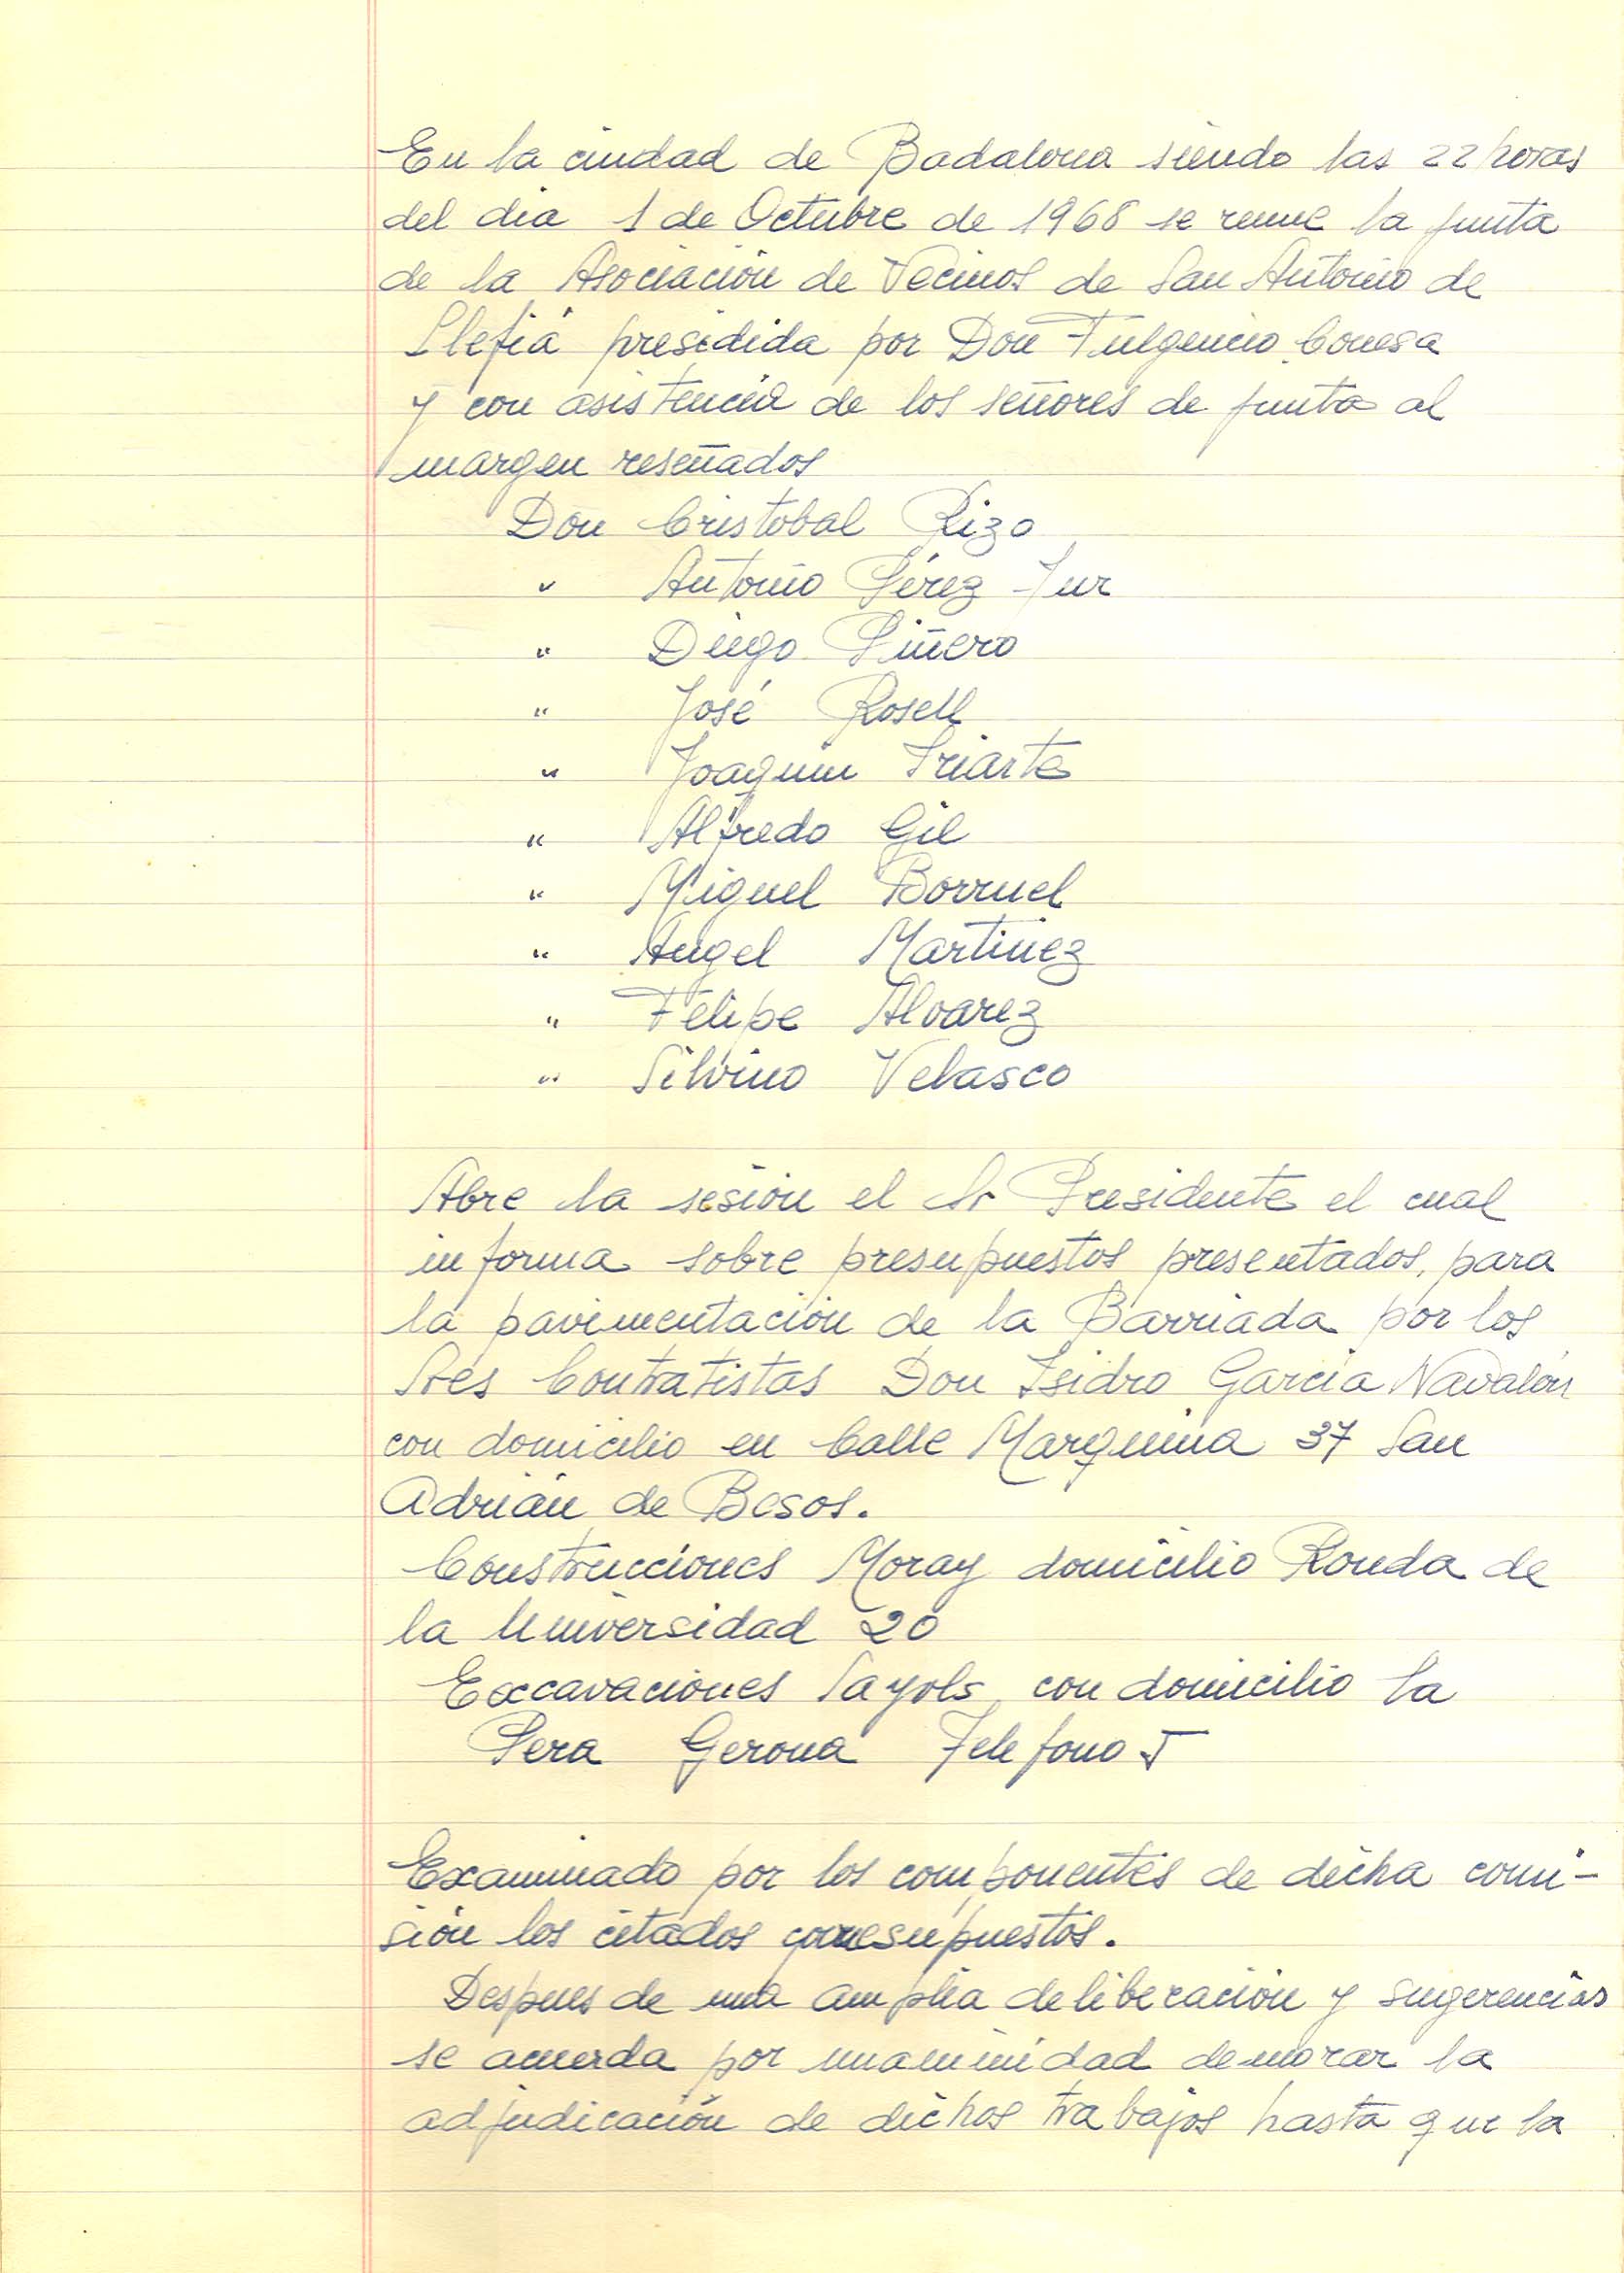 En la ciudad de Badalona siendo las 22 horas
del dia 1 de Octubre de 1968 se reune la junta
de la Asociación de Vecinos de San Antonio de
Llefiá presidida por Don Fulgencio Conesa
y con asistencia de los señores de junta al
margen reseñados
Don Cristobal Rizo
" Antonio Pérez Jur
" Diego Piñero
" José Rosell
" Joaquin Iriarte
" Alfredo Gil
" Miguel Borruel
" Angel Martinez
" Felipe Alvarez
" Silvino Velasco
Abre la sesión el Sr Presidente el cual
informa sobre presupuestos presentados, para
la pavimentación de la Barriada por los
Sres Contratistas Don Isidro García Navalón
con domicilio en Calle Marquina 37 San
Adrián de Besos.
Construcciones Moray domicilio Ronda de
la Universidad 20
Excavaciones Sayols con domicilio la
Pera Gerona Telefono 5
Examinado por los componentes de dicha comi-
sión los citados presupuestos.
Despues de una amplia deliberación y sugerencias
se acuerda por unanimidad demorar la
adjudicación de dichos trabajos hasta que la